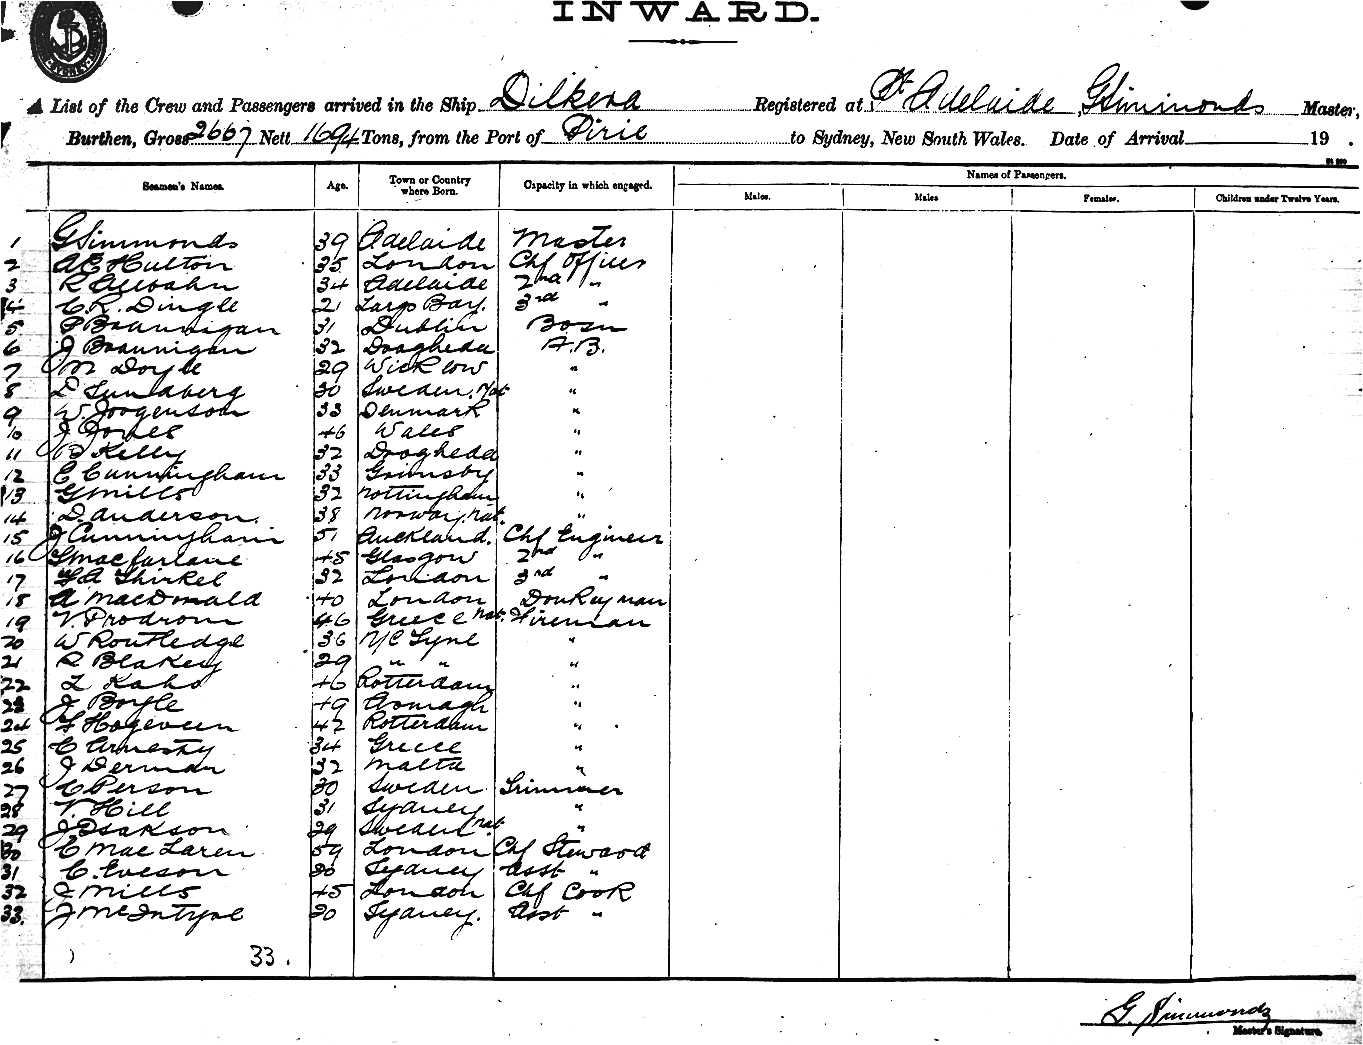 INWARD.
SYDNEY
List of the Crew and Passengers arrived in the Ship Dilkera Registered at Pt Adelaide, GSimmonds Master,
Burthen, Gross 2667 Nett 1694 Tons, from the Port of Pirie to Sydney, New South Wales. Date of Arrival 19 .
Seamen's Names. Age. Town or Country where Born. Capacity in which engaged. Names of Passengers.
Males. Males Females. Children under Twelve Years.
1 GSimmonds 39 Adelaide Master
2 AE Hulton 35 London Chf Officer
3 R 34 Adelaide 2nd "
4 C.R. Dingle 21 Largs Bay. 3rd "
5 P Brannigan 31 Dublin Bosn
6 J Brannigan 32 Drogheda A.B.
7 M Doyle 29 Wicklow "
8 D Lundberg 30 Sweden. Nat "
9 W. Jorgenson 33 Denmark "
10 J Jones 46 Wales "
11 B Kelly 32 Drogheda "
12 C Cunningham 33 Grimsby "
13 G Mills 32 Nottingham "
14 D. Anderson. 38 Norway. Nat. "
15 J Cunningham 51 Auckland. Chf Engineer
16 G MacFarlane 48 Glasgow 2nd "
17 G A Thirkel 32 London 3rd "
18 A MacDonald 40 London Donkeyman
19 V. Prodrom 46 Greece Nat. Fireman
20 W Routledge 36 N/C Tyne "
21 R Blakey 29 " " "
22 L Kaho 46 Rotterdam "
23 J Boyle 49 Armagh "
24 F Hogeveen 42 Rotterdam "
25 C Arnesty 34 Greece "
26 J Derman 32 Malta "
27 C Person 30 Sweden Trimmer
28 V. Hill 31 Sydney "
29 J Isakson 29 Sweden Nat "
30 C MacLaren 59 London Chf Steward
31 C. Eveson 20 Sydney Asst "
32 J Mills 45 London Chf Cook
33. J McIntyre 20 Sydney. Asst "
33.
G. Simmonds
Master's Signature.